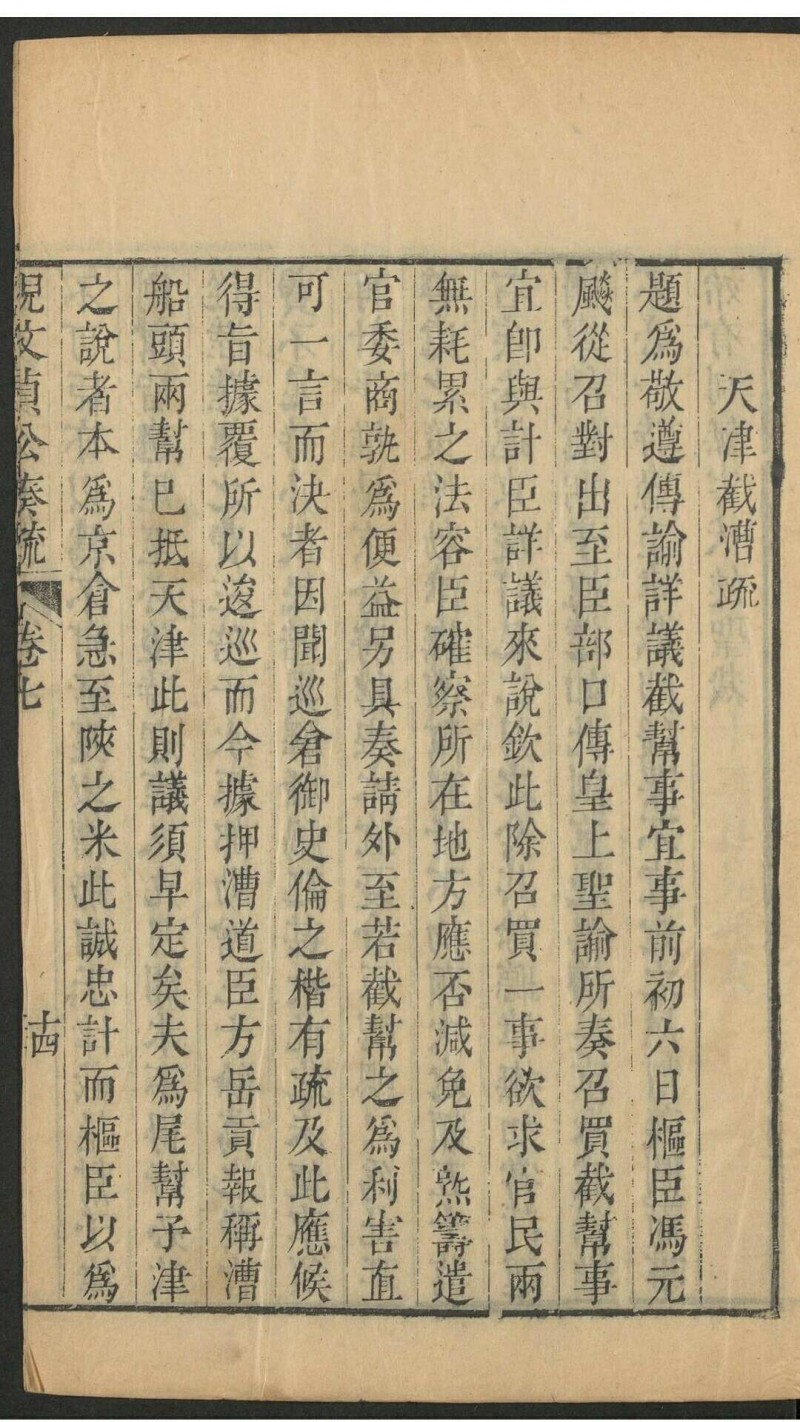 天津截漕疏
題爲敬遵傳諭詳議截幫事宜事前初六日樞臣馮元
飈從召對出至臣部口傳皇上聖諭所奏召買截幫事
宜卽與計臣詳議來說欽此除召買一事欲求官民兩
無耗累之法容臣確察所在地方應否減免及熟籌遣
官委商孰爲便益另具奏請外至若截幫之爲利害直
可一言而決者因聞巡倉御史倫之楷有疏及此應候
得旨據覆所以逡巡而今據押漕道臣方岳貢報稱漕
船頭兩幫已抵天津此則議須早定矣夫爲尾幫予津
之說者本爲京倉急至陝之米此誠忠計而樞臣以爲
倪文貞公奏疏 卷七 十四